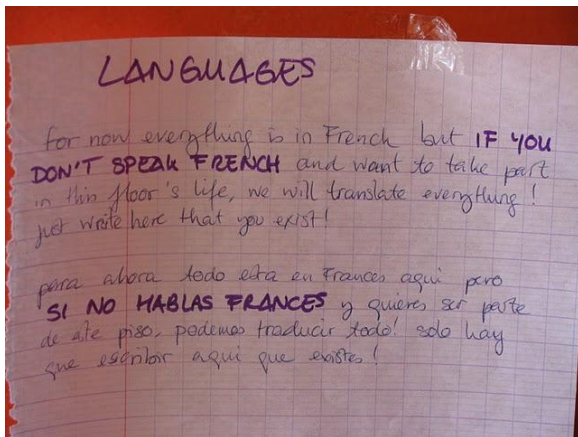 LANGUAGES
for now everything is in French but IF YOU
DON'T SPEAK FRENCH and want to take part
in this floor's life, we will translate everything!
just write here that you exist!
para ahora todo esta en Frances aqui pero
SI NO HABLAS FRANCES y quieres ser parte
de este piso, podemos traducir todo! solo hay
que escribir aqui que existes!